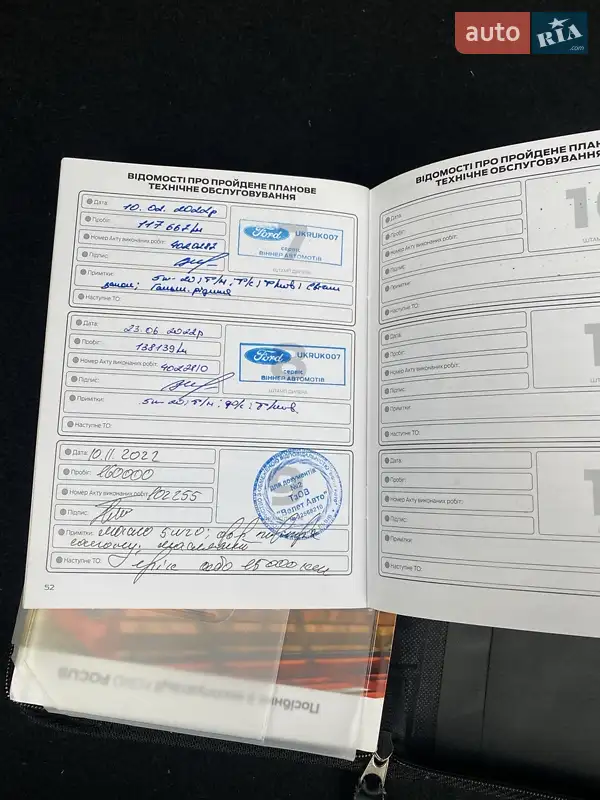 auto RIA .com
ВІДОМОСТІ ПРО ПРОЙДЕНЕ ПЛАНОВЕ
ТЕХНІЧНЕ ОБСЛУГОВУВАННЯ
Дата: 10.02.2022р
Пробіг: 117667км
Номер Акту виконаних робіт: 4020187
Підпис:
Примітки: 5w-20; т/м; т/к; т/пов;
Гальм. рідина
Наступне ТО:
7
Ford UKRUK007
сервіс
ВІННЕР АВТОМОТІВ
ШТАМП ДИЛЕРА
Дата: 23.06.2022р
Пробіг: 138139км
Номер Акту виконаних робіт: 4022810
Підпис:
Примітки: 5w-20; т/м;
Наступне ТО:
8
Ford UKRUK007
сервіс
ВІННЕР АВТОМОТІВ
ШТАМП ДИЛЕРА
Дата: 10.11.2022
Пробіг: 160000
Номер Акту виконаних робіт: 102255
Підпис:
Примітки: масло 5w20;
салону;
Наступне ТО: 15000 км
9
для документів
№2
ТзОВ
"Велет Авто"
52
ВІДОМОСТІ ПРО ПРОЙДЕНЕ ПЛАНОВЕ
ТЕХНІЧНЕ ОБСЛУГОВУВАННЯ
Дата:
Пробіг:
Номер Акту виконаних робіт:
Підпис:
Примітки:
Наступне ТО:
1
Дата:
Пробіг:
Номер Акту виконаних робіт:
Підпис:
Примітки:
Наступне ТО:
1
Дата:
Пробіг:
Номер Акту виконаних робіт:
Підпис:
Примітки:
Наступне ТО:
1
Посібник з експлуатації FORD FOCUS